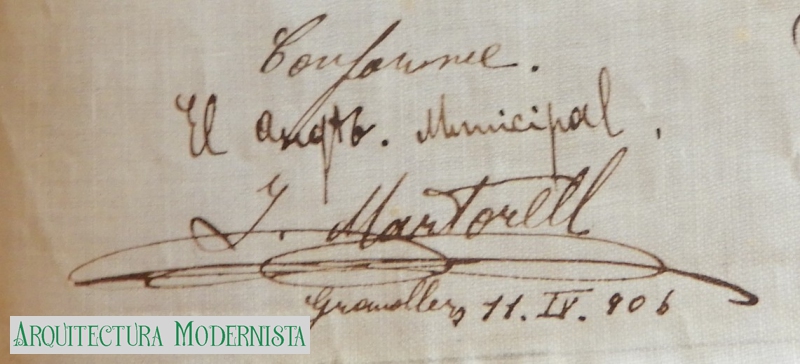 Conforme.
El Arqto. Municipal,
J. Martorell
Granollers 11. IV. 906
ARQUITECTURA MODERNISTA